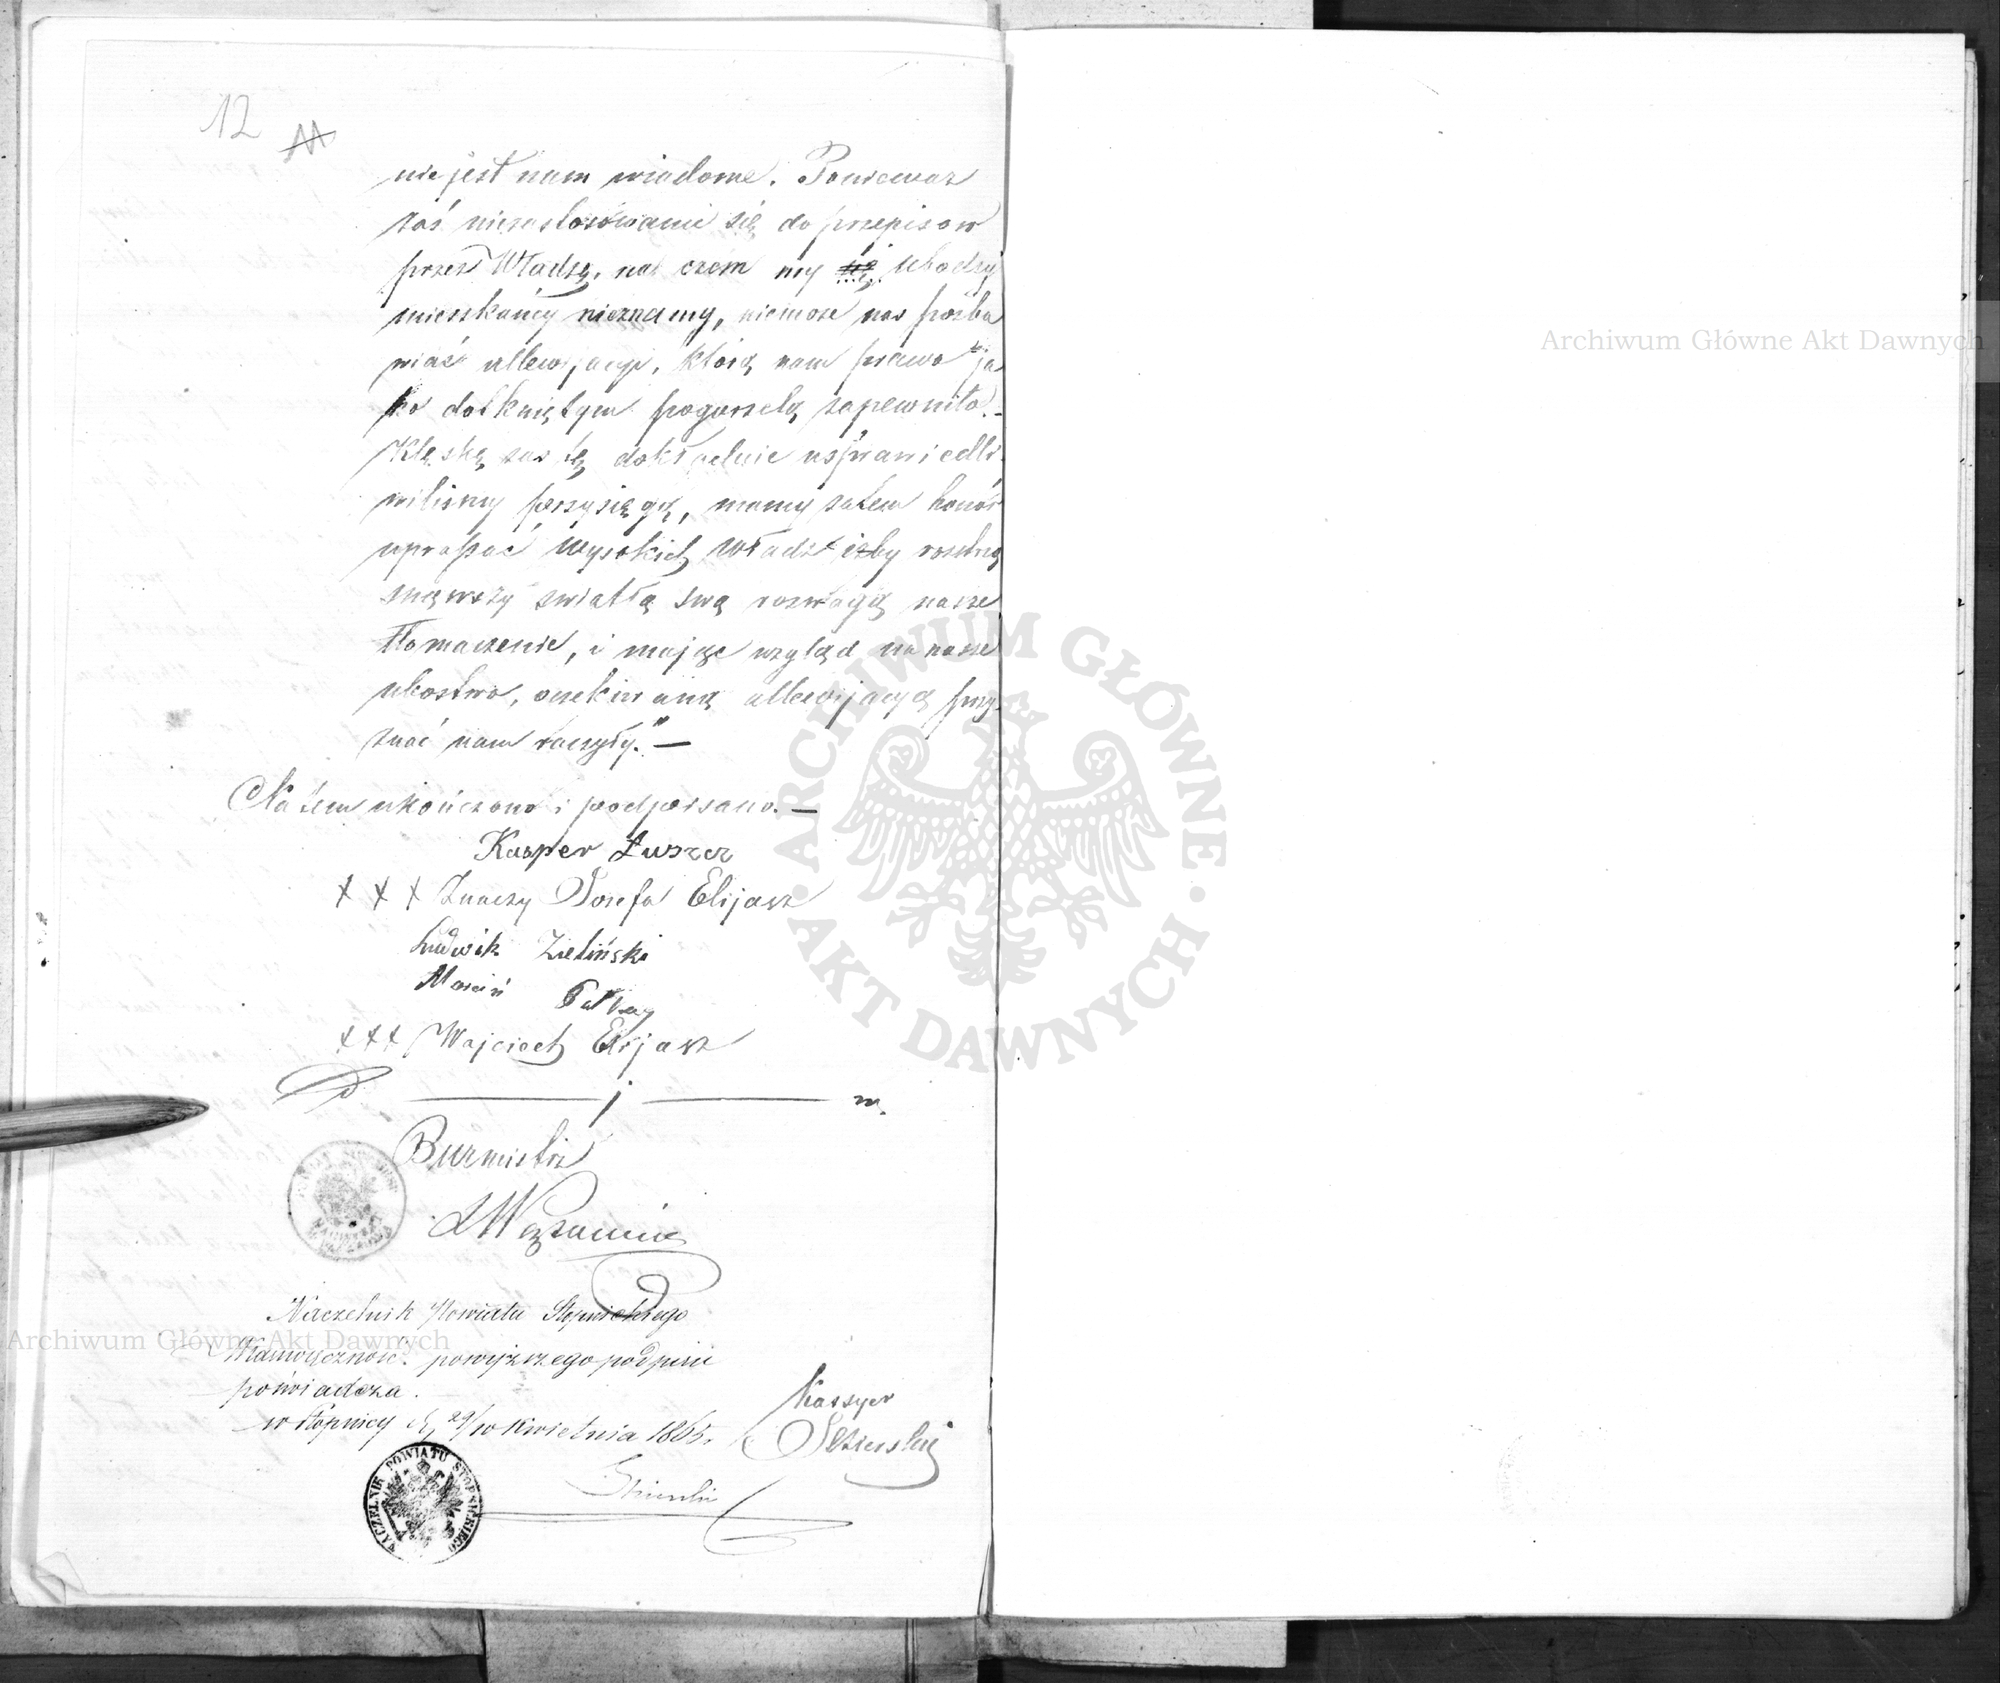 12
nie jest nam wiadome. Ponieważ
zaś niezastosowanie się do przepisów
przez Władzę, na czem my się ubodzy
mieszkańcy nieznamy, niemoże nas pozba
wiać allewijacyi, którą nam prawo ja
ko dotkniętym pogorzelą zapewniło.-
Klęskę zaś tę dokładnie usprawiedli-
wiliśmy przysięgą, mamy zatem honor
upraszać wysokich Władz iżby roztrzą
snąwszy światłą swą rozwagą nasze
tłomaczenie, i mając wzgląd na nasze
ubostwo, oczekiwaną allewijacyą przy-
znać nam raczyły." —
Na tem ukończono i podpisano. —
Kasper Łuszcz
X X X Znaczy Józefa Elijasz
Ludwik Zieliński
Marcin
XXX Wojciech Elijasz
j m.
Burmistrz
Naczelnik Powiatu Stopnickiego
Własnoręczność powyższego podpisu
poświadcza.
w Stopnicy d. 29/10 Kwietnia 1865.
Kassyer
NACZELNIK POWIATU STOPNICKIEGO
Archiwum Główne Akt Dawnych
Archiwum Główne Akt Dawnych
ARCHIWUM GŁÓWNE · AKT DAWNYCH ·